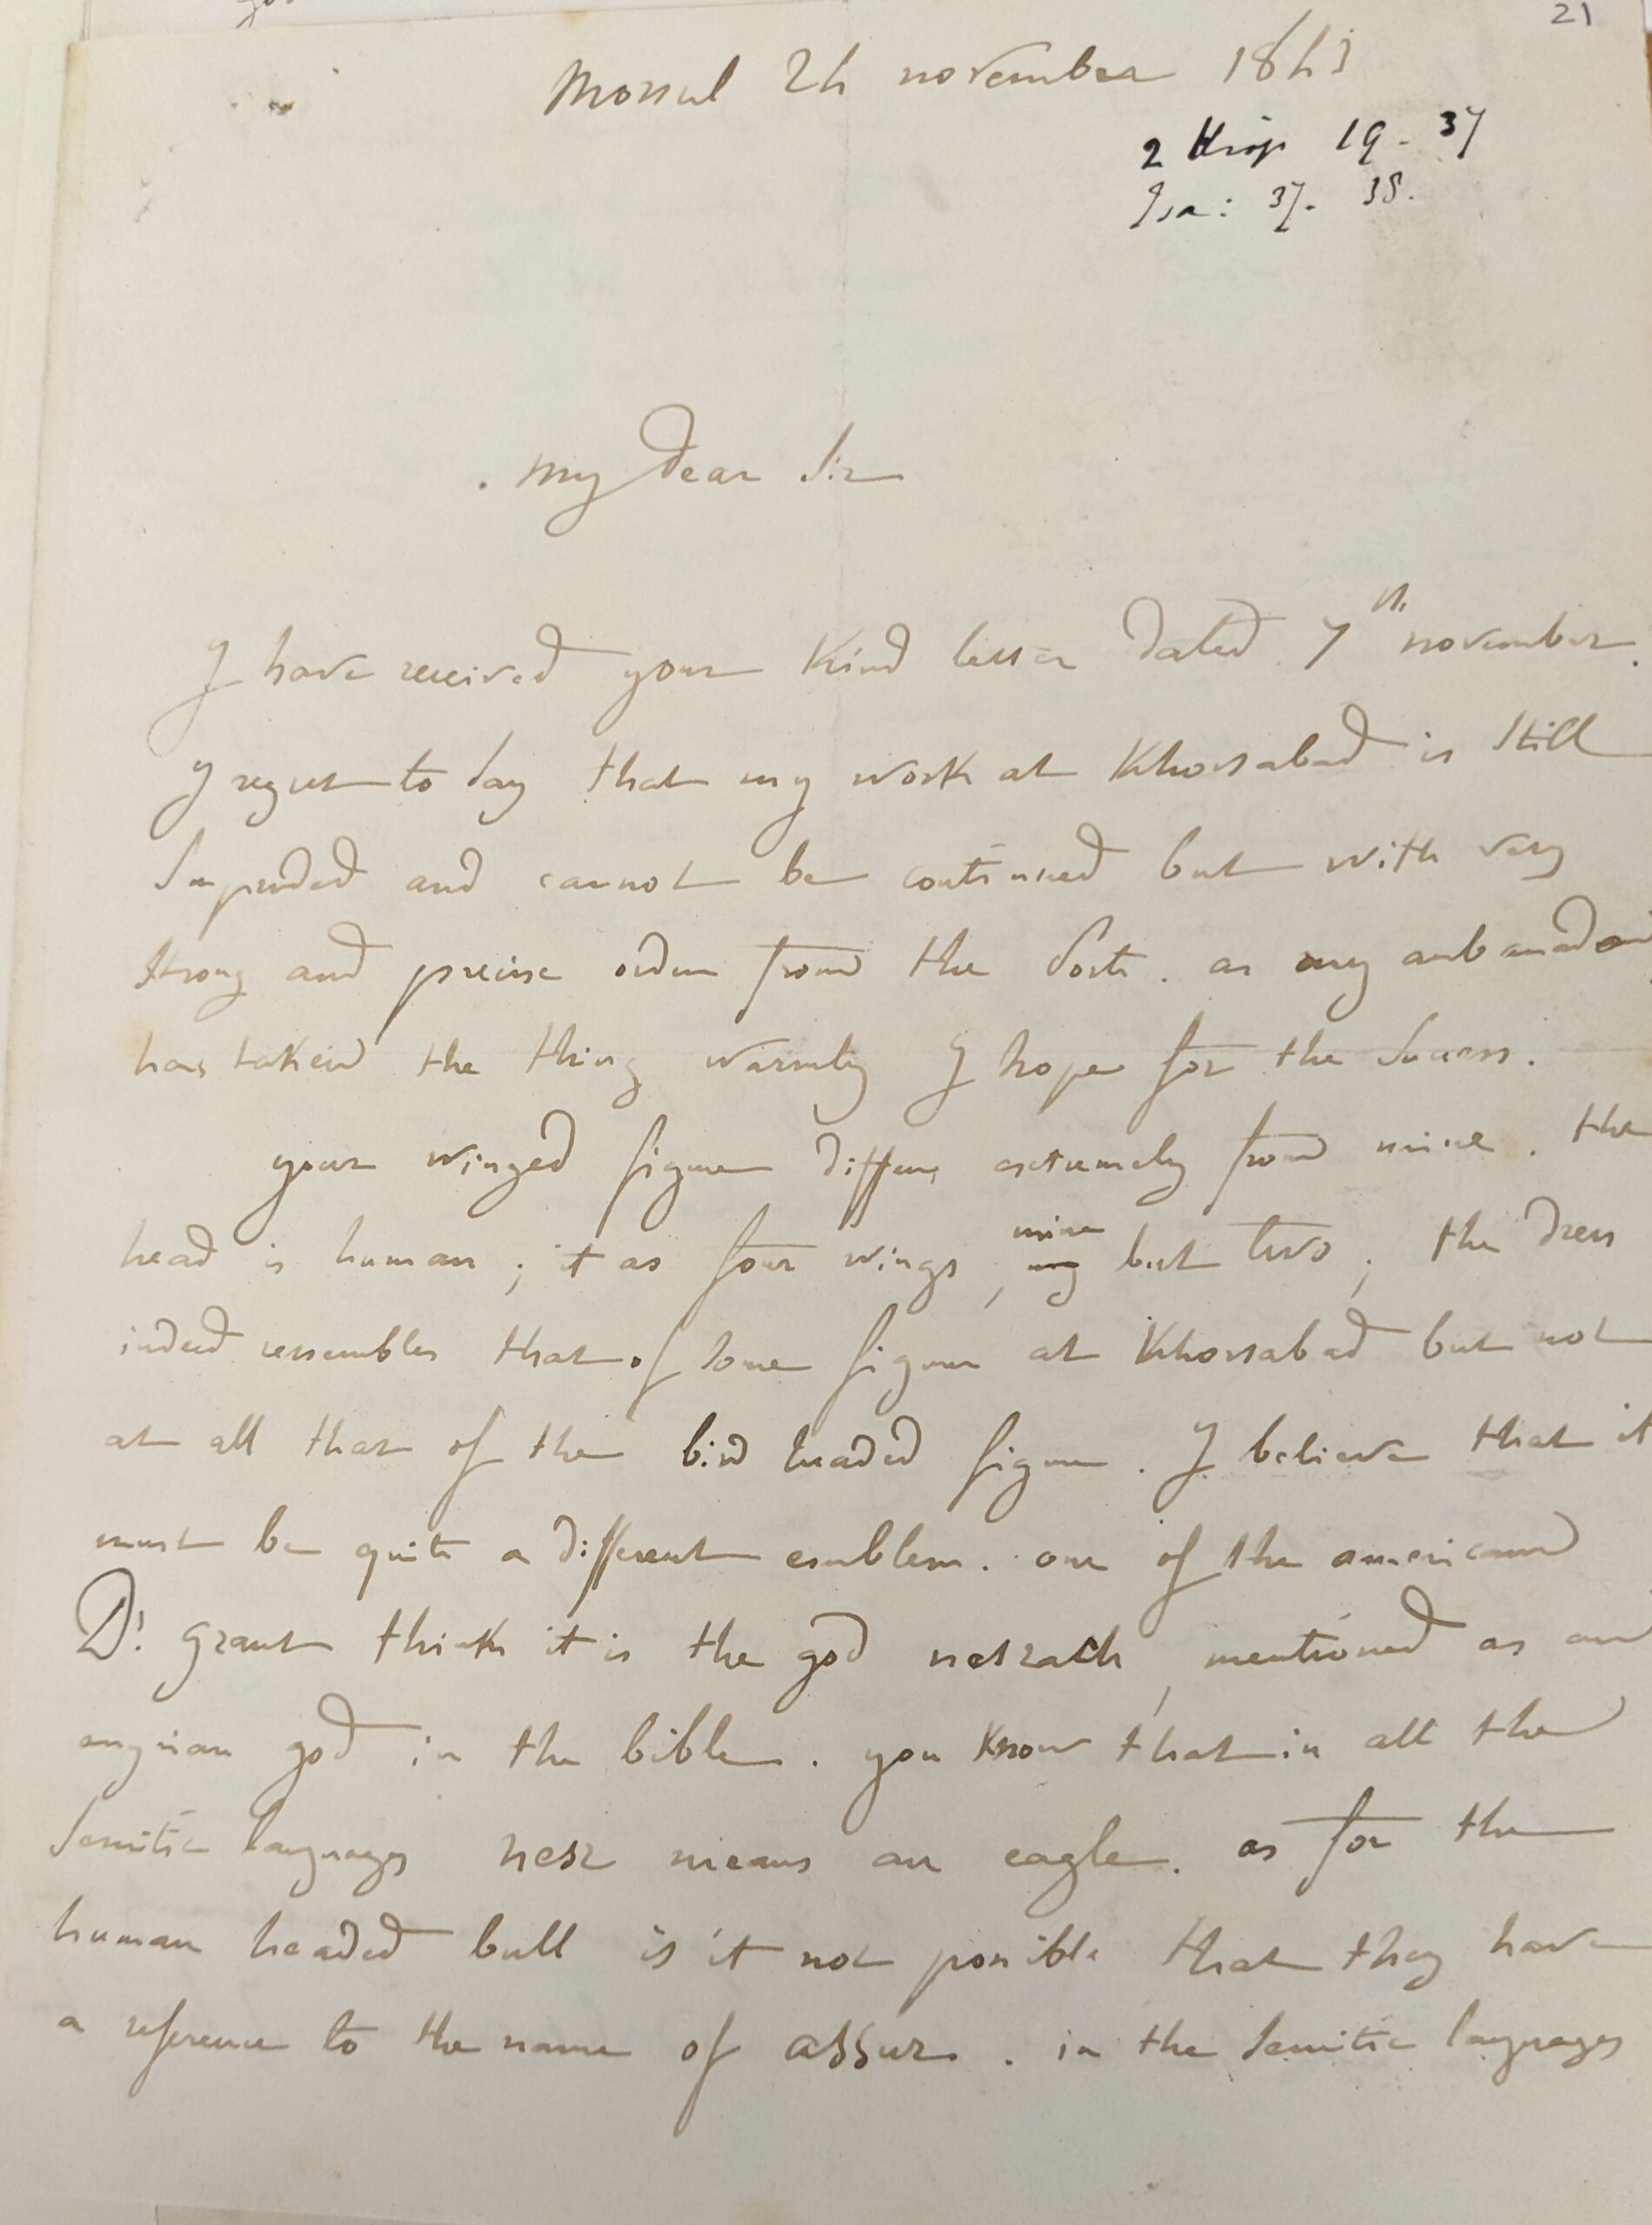 21
Mossul 24 november 1843
2 Kings 19. 37
Isa: 37. 38.
my dear Sir
I have received your kind letter dated 7th november.
I regret to say that my work at Khorsabad is still
suspended and cannot be continued but with very
strong and precise order from the Porte. as my ambassador
has taken the thing warmly I hope for the success.
your winged figure differs extremely from mine. the
head is human; it as four wings, my mine but two; the dress
indeed ressembles that of some figure at Khorsabad but not
at all that of the bird headed figure. I believe that it
must be quite a different emblem. one of the american
Dr. grant think it is the god nesrach, mentioned as an
assyrian god in the bible. you know that in all the
Semitic languages nesr means an eagle. as for the
human headed bull is it not possible that they have
a reference to the name of assur. in the Semitic languages